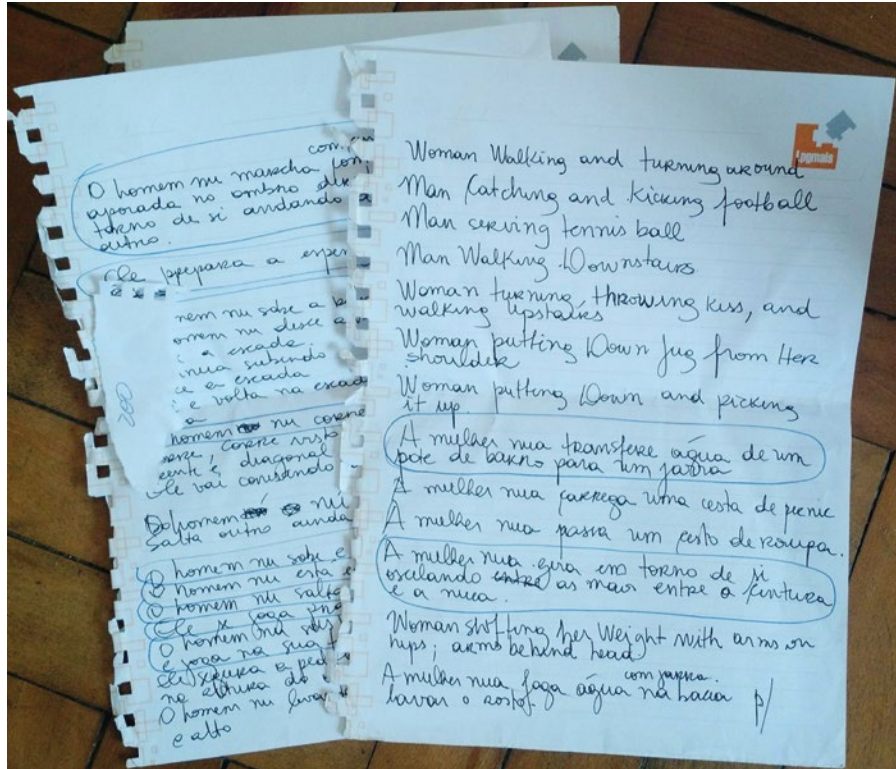 com
O homem nu marcha com
apoiada no ombro
torno de si andando a
outro.
Ele prepara a
nem nu sobe a
omem nu desce a
a escada.
inua subindo
ce a escada
e volta na escad
a
homem nu corre
corre visto
ente e diagonal
Ele vai cansando
O homem nu
salta outro ainda
O homem nu sobe e
O homem nu está e
O homem nu salta
Ele joga
O homem nu
e joga na sua
Ele a ped
na altura do
O homem nu levan
e alto
200
Lpgmais
Woman Walking and turning around
Man Catching and Kicking football
Man serving tennis ball
Man Walking Downstairs
Woman turning, throwing kiss, and
walking upstairs
Woman putting Down Jug from Her
shoulder
Woman putting Down and picking
it up.
A mulher nua transfere água de um
pote de barro para um jarra
A mulher nua carrega uma cesta de picnic
A mulher nua passa um cesto de roupa.
A mulher nua gira em torno de si
oscilando entre as mãos entre a cintura
e a nuca.
Woman shifting her Weight with arms on
hips; arms behind head
com jarra.
A mulher nua joga água na bacia p/
lavar o rosto.